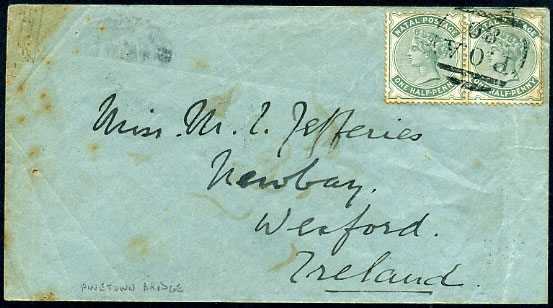 NATAL POSTAGE NATAL POSTAGE
ONE HALF-PENNY ONE HALF-PENNY
P.O.A.
Miss. M. I. Jefferies
Newbay.
Wexford.
Ireland.
PINETOWN BRIDGE